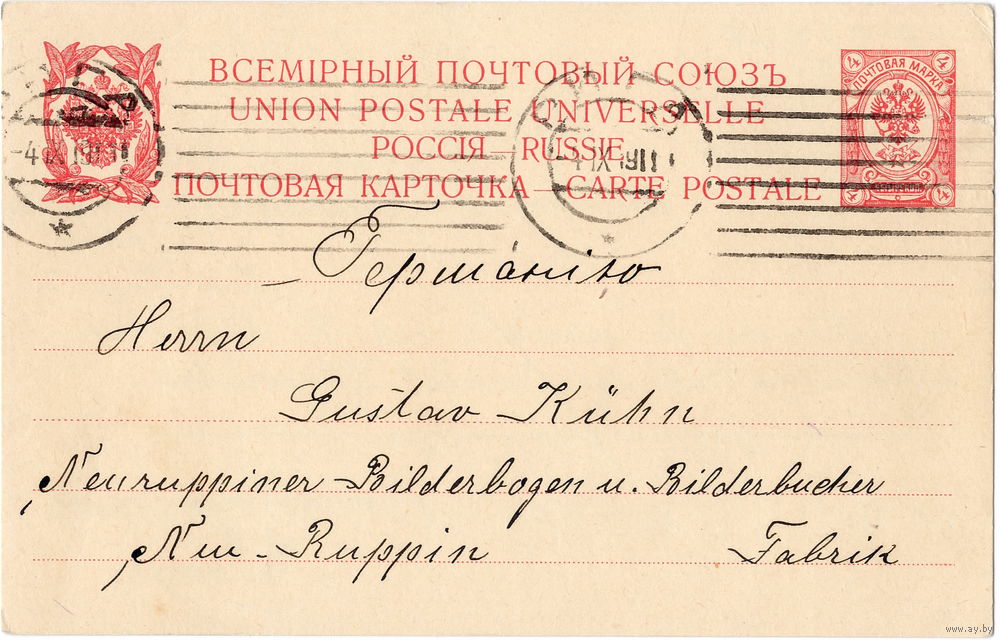 ВСЕМІРНЫЙ ПОЧТОВЫЙ СОЮЗЪ
UNION POSTALE UNIVERSELLE
РОССІЯ—RUSSIE
ПОЧТОВАЯ КАРТОЧКА—CARTE POSTALE
4 ПОЧТОВАЯ МАРКА 4
4 4
Германію
Herrn
Gustav Kühn
Neuruppiner Bilderbogen u. Bilderbucher
Neu-Ruppin Fabrik
www.ay.by